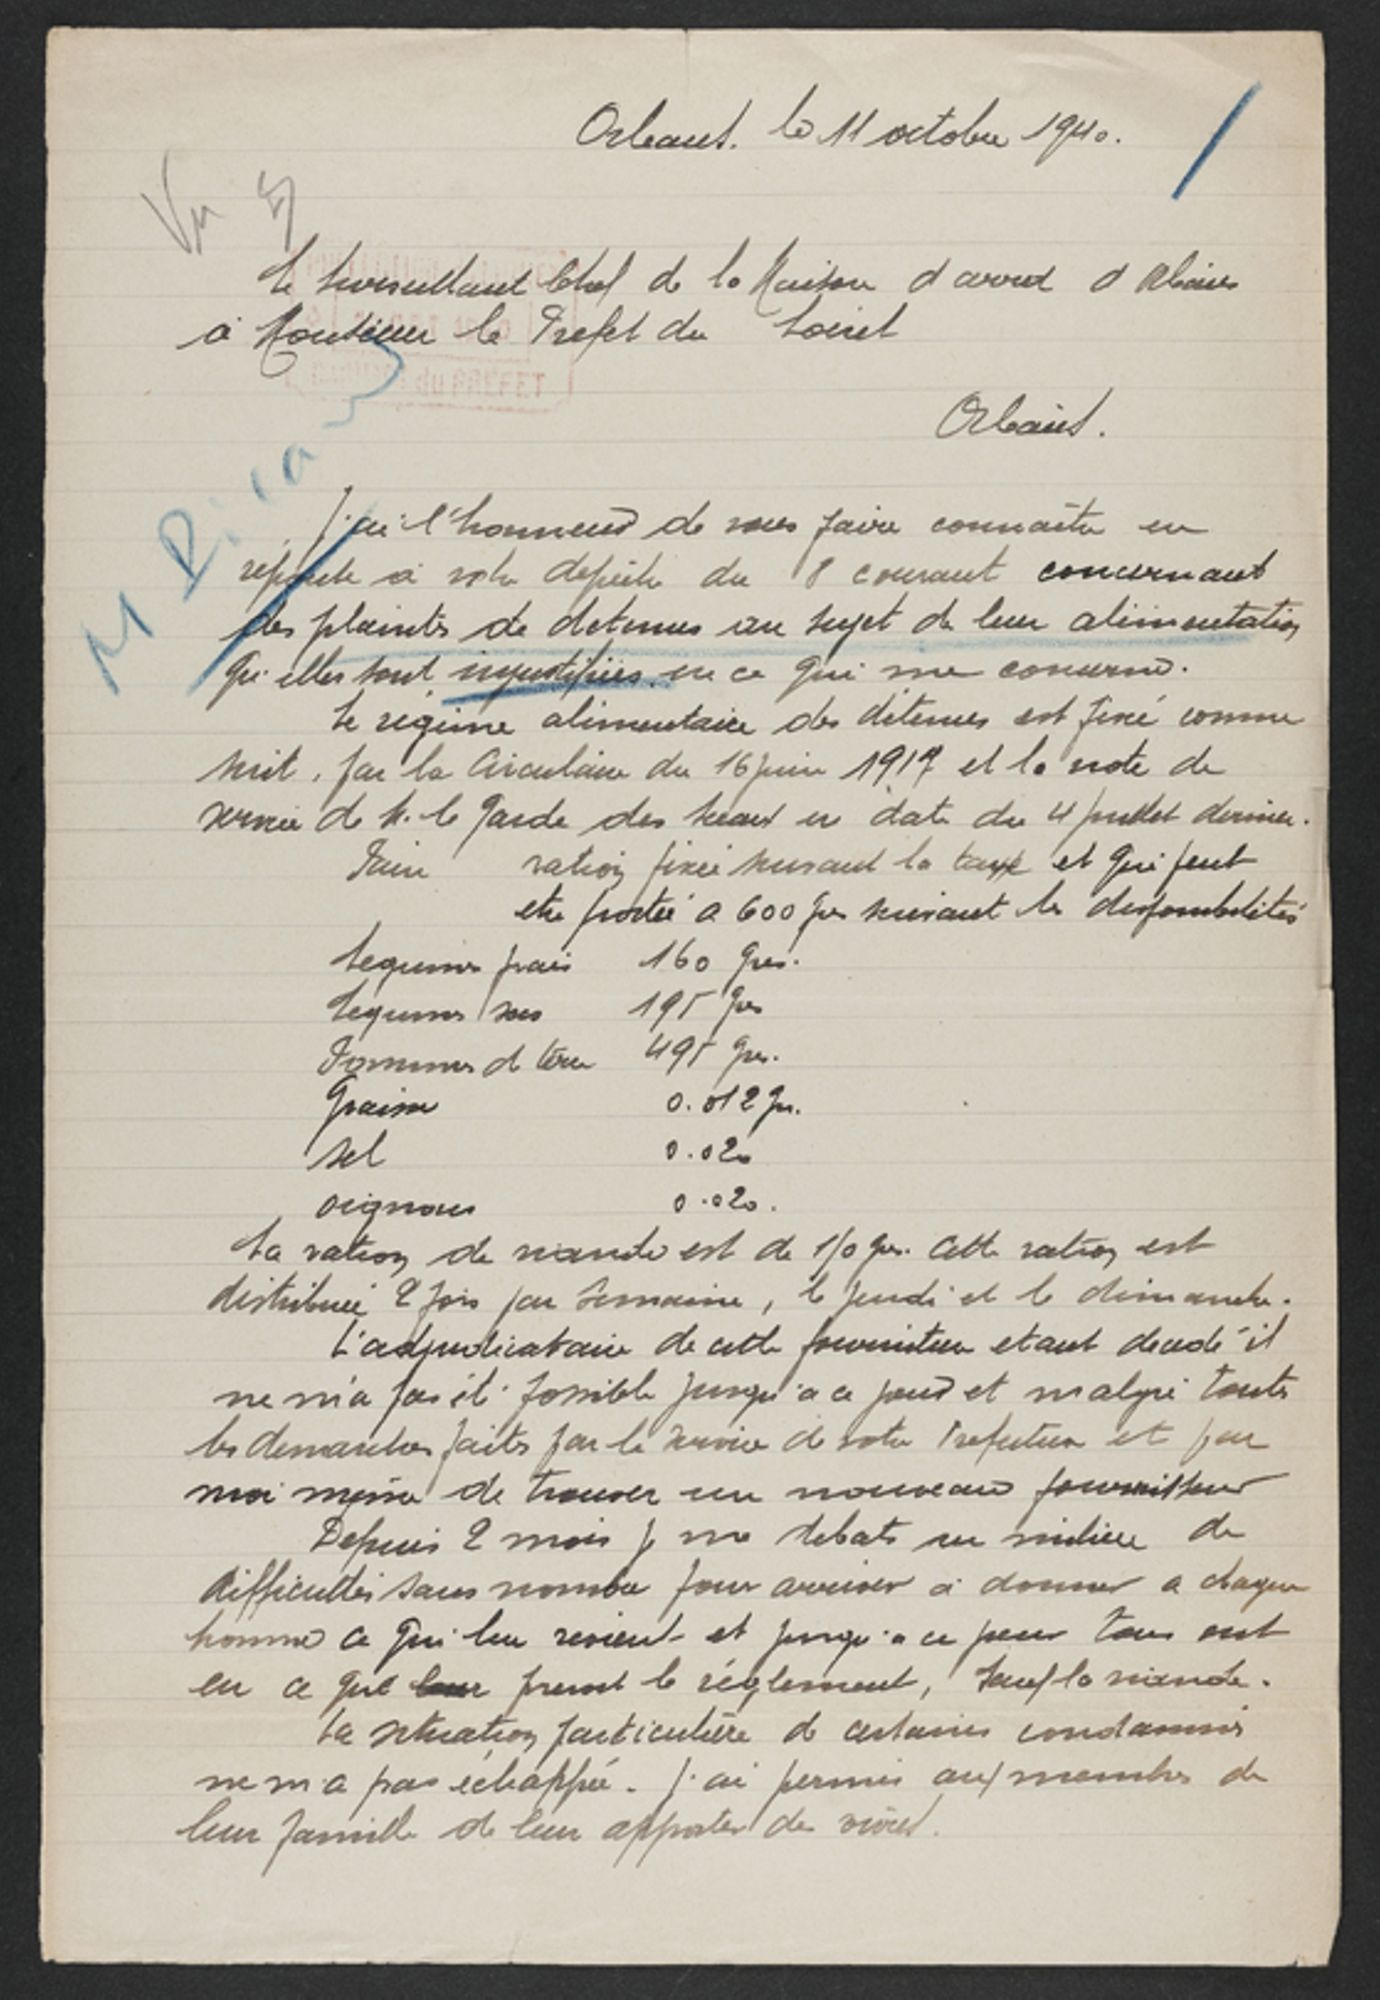 Orléans. le 11 octobre 1940.
Vu
Le Surveillant Chef de la Maison d'arret d'Orléans
à Monsieur le Prefet du Loiret
Orléans.
J'ai l'honneur de vous faire connaitre en
reponse à votre depêche du 8 courant concernant
des plaintes de detenus au sujet de leur alimentation
qu'elles sont injustifiées en ce qui me concerne.
Le régime alimentaire des détenus est fixé comme
suit. par la Circulaire du 16 juin 1917 et la note de
service de M. le Garde des Sceaux en date du 4 juillet dernier.
Pain ration fixée suivant la taxe et qui peut
etre portée a 600 grs suivant les disponibilités
Legumes frais 160 grs.
Legumes secs 195 grs
Pommes de terre 495 grs.
Graisse 0.012 gr.
sel 0.020
oignons 0.020.
La ration de viande est de 150 grs. Cette ration est
distribuée 2 fois par semaine, le jeudi et le dimanche.
L'adjudicataire de cette fourniture etant decedé il
ne m'a pas été possible jusqu'a ce jour et malgré toutes
les demarches faites par le service de votre Prefecture et par
moi même de trouver un nouveau fournisseur
Depuis 2 mois je me debats au milieu de
difficultés sans nombre pour arriver à donner a chaque
homme ce qui leu revient et jusqu'a ce jour tous ont
eu ce que prevoit le réglement, sauf la viande.
La situation particulière de certains condamnés
ne m'a pas échappée. J'ai permis aux membres de
leur famille de leur apporter des vivres.